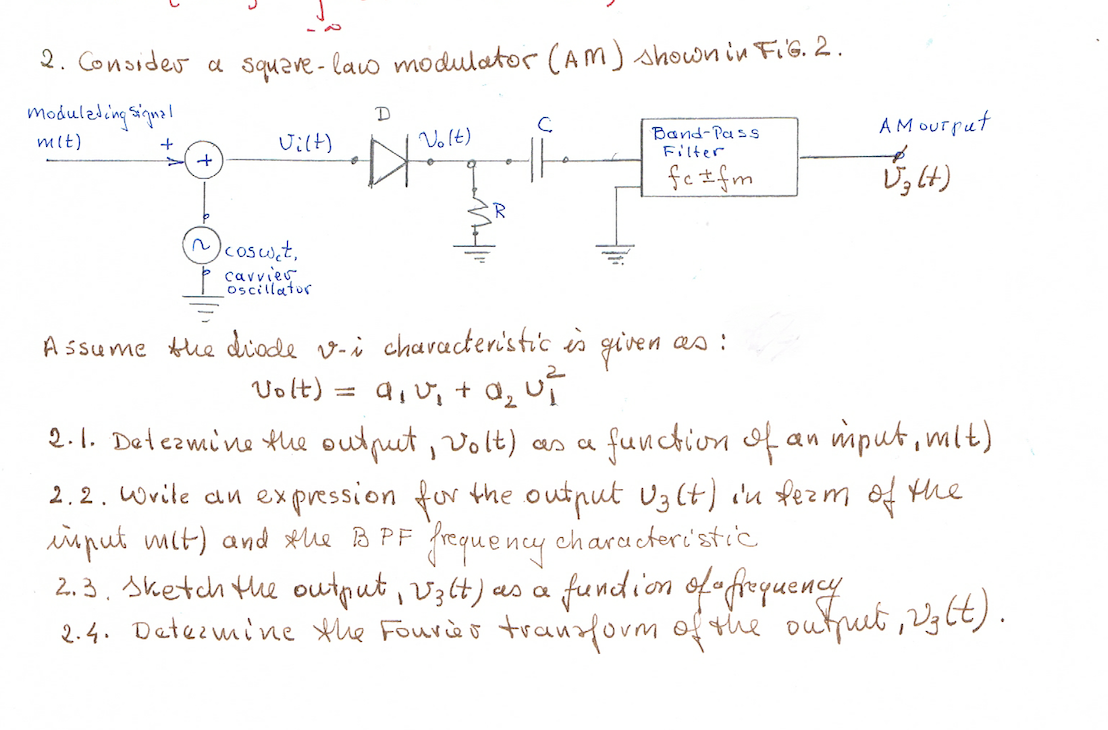 2. Consider a square-law modulator (AM) shown in FiG. 2.
modulating signal
m(t)
+
+
Ui(t)
D
Vo(t)
C
R
Band-Pass
Filter
fc ± fm
AM output
U3(t)
~
cosωct,
carrier
oscillator
Assume the diode v-i characteristic is given as :
Uo(t) = a1 U1 + a2 U1^2
2.1. Determine the output, Vo(t) as a function of an input, m(t)
2.2. Write an expression for the output U3(t) in term of the
input m(t) and the BPF frequency characteristic
2.3. Sketch the output, V3(t) as a function of a frequency
2.4. Determine the Fourier transform of the output, V3(t).